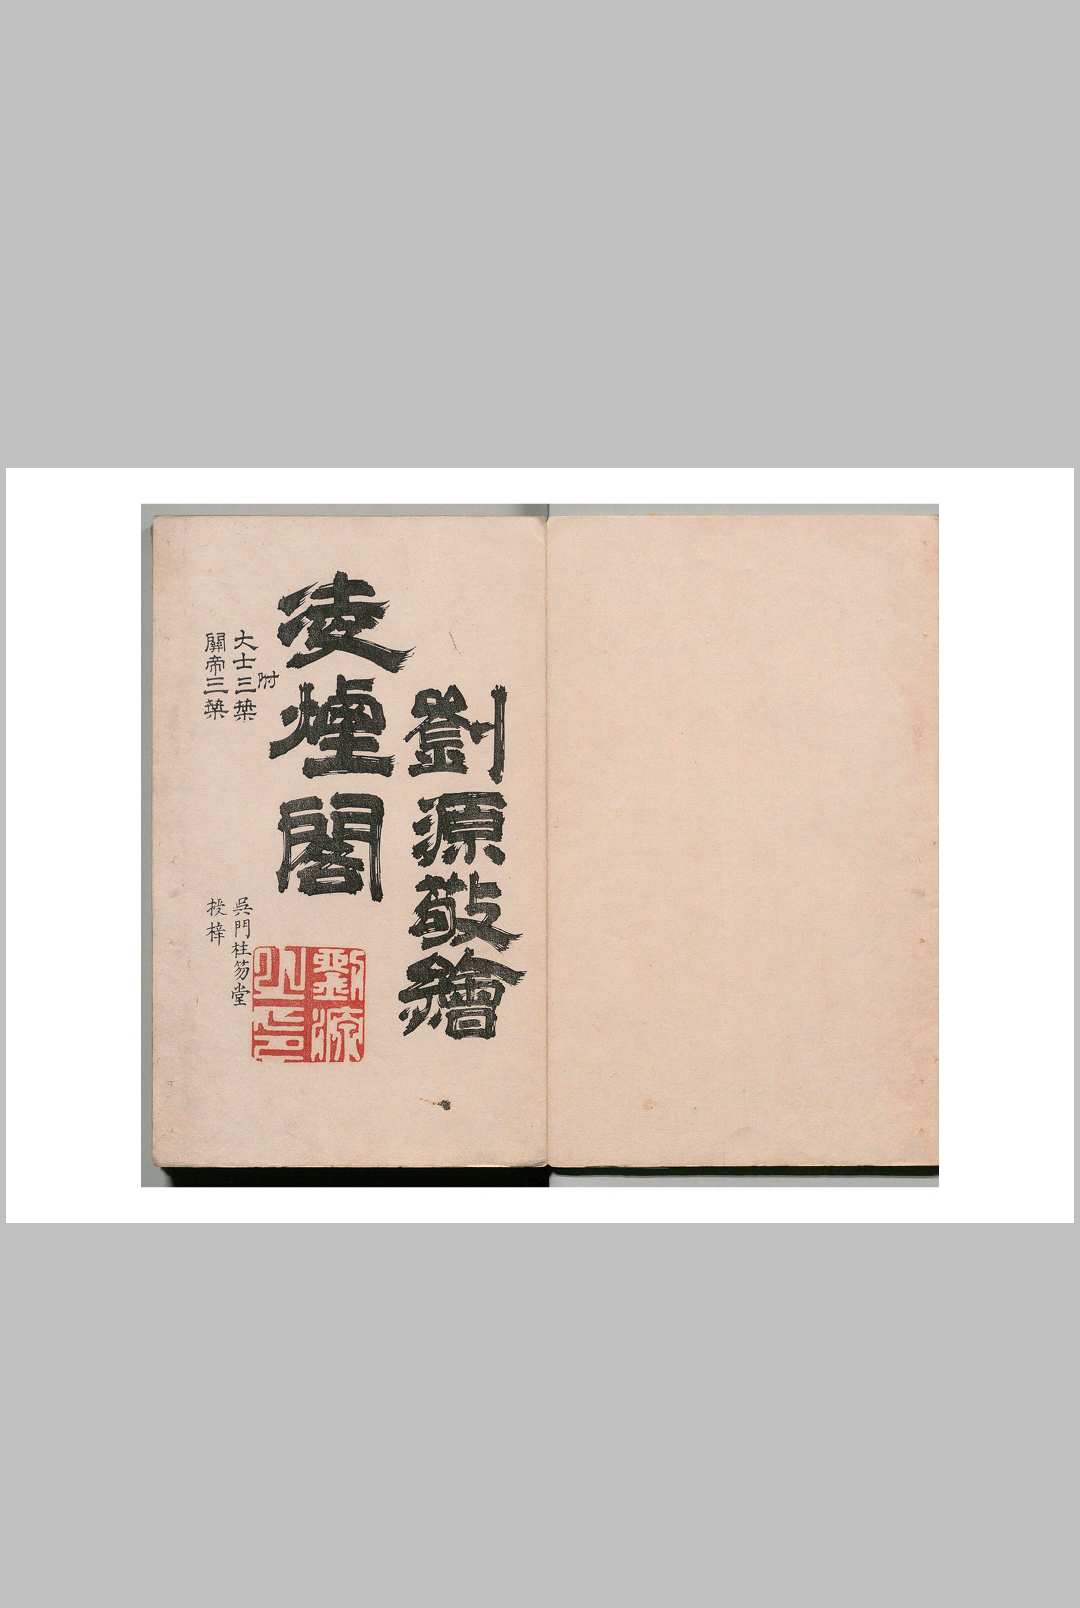 劉源敬繪
凌煙閣
附
大士三葉
關帝三葉
吳門柱笏堂
授梓
劉源之印